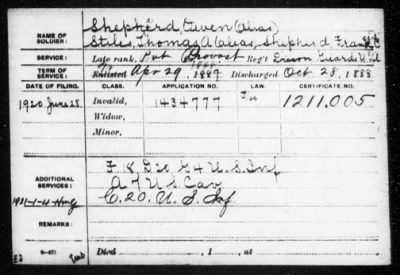 NAME OF SOLDIER: Shepherd, Owen (Alias)
Stiles, Thomas A (alias, Shepherd, Frank
SERVICE: Late rank, Pvt Provost Reg't Prison Guard
TERM OF SERVICE: Enlisted Apr 29, 1887 Discharged Oct 28, 1888
DATE OF FILING. CLASS. APPLICATION NO. CERTIFICATE NO.
1920 June 28. Invalid, 1434777 1211.005
Widow,
Minor,
ADDITIONAL SERVICES: F 18, G 20, G 4 U.S. Inf
A 7 U.S. Cav
C. 20. U.S. Inf
REMARKS:
Died , 1 , at